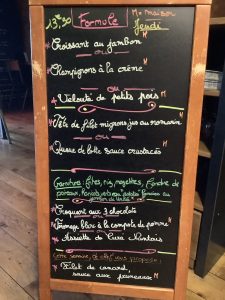 13€90 Formule M= maison
Jeudi
* Croissant au jambon M
ou
* Champignons à la crème M
ou
* Velouté de petits pois M
* Filet mignon jus au romarin M
ou
* Queue de lotte sauce crustacés M
Garniture: frites, riz, mogettes, fondue de
poireaux,
* Croquant aux 3 chocolats
* Fromage blanc à la compote de pomme M
* Assiette de Curé Nantais
Cette semaine, et vous propose :
* Filet de canard, M
sauce aux pruneaux